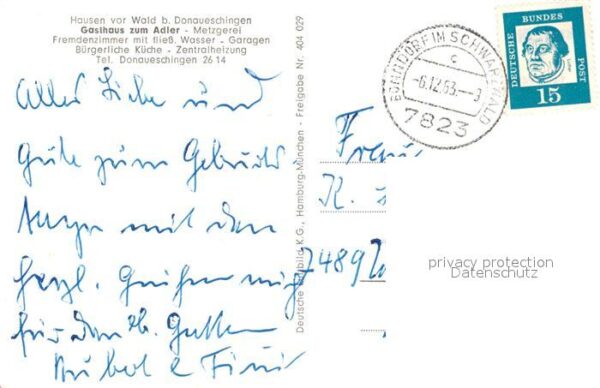 Hausen vor Wald b. Donaueschingen
Gasthaus zum Adler - Metzgerei
Fremdenzimmer mit fließ. Wasser - Garagen
Bürgerliche Küche - Zentralheizung
Tel. Donaueschingen 26 14
Alles Liebe und
Gute zum Geburts-
mit den
herzl. Grüßen auch
für den Gatten
Deutsche K.G., Hamburg-München - Freigabe Nr. 404 029
BONNDORF IM SCHWARZWALD
c
-6.12.63.--9
7823
DEUTSCHE BUNDES POST
Luther
15
Frau
K.
7489
privacy protection
Datenschutz